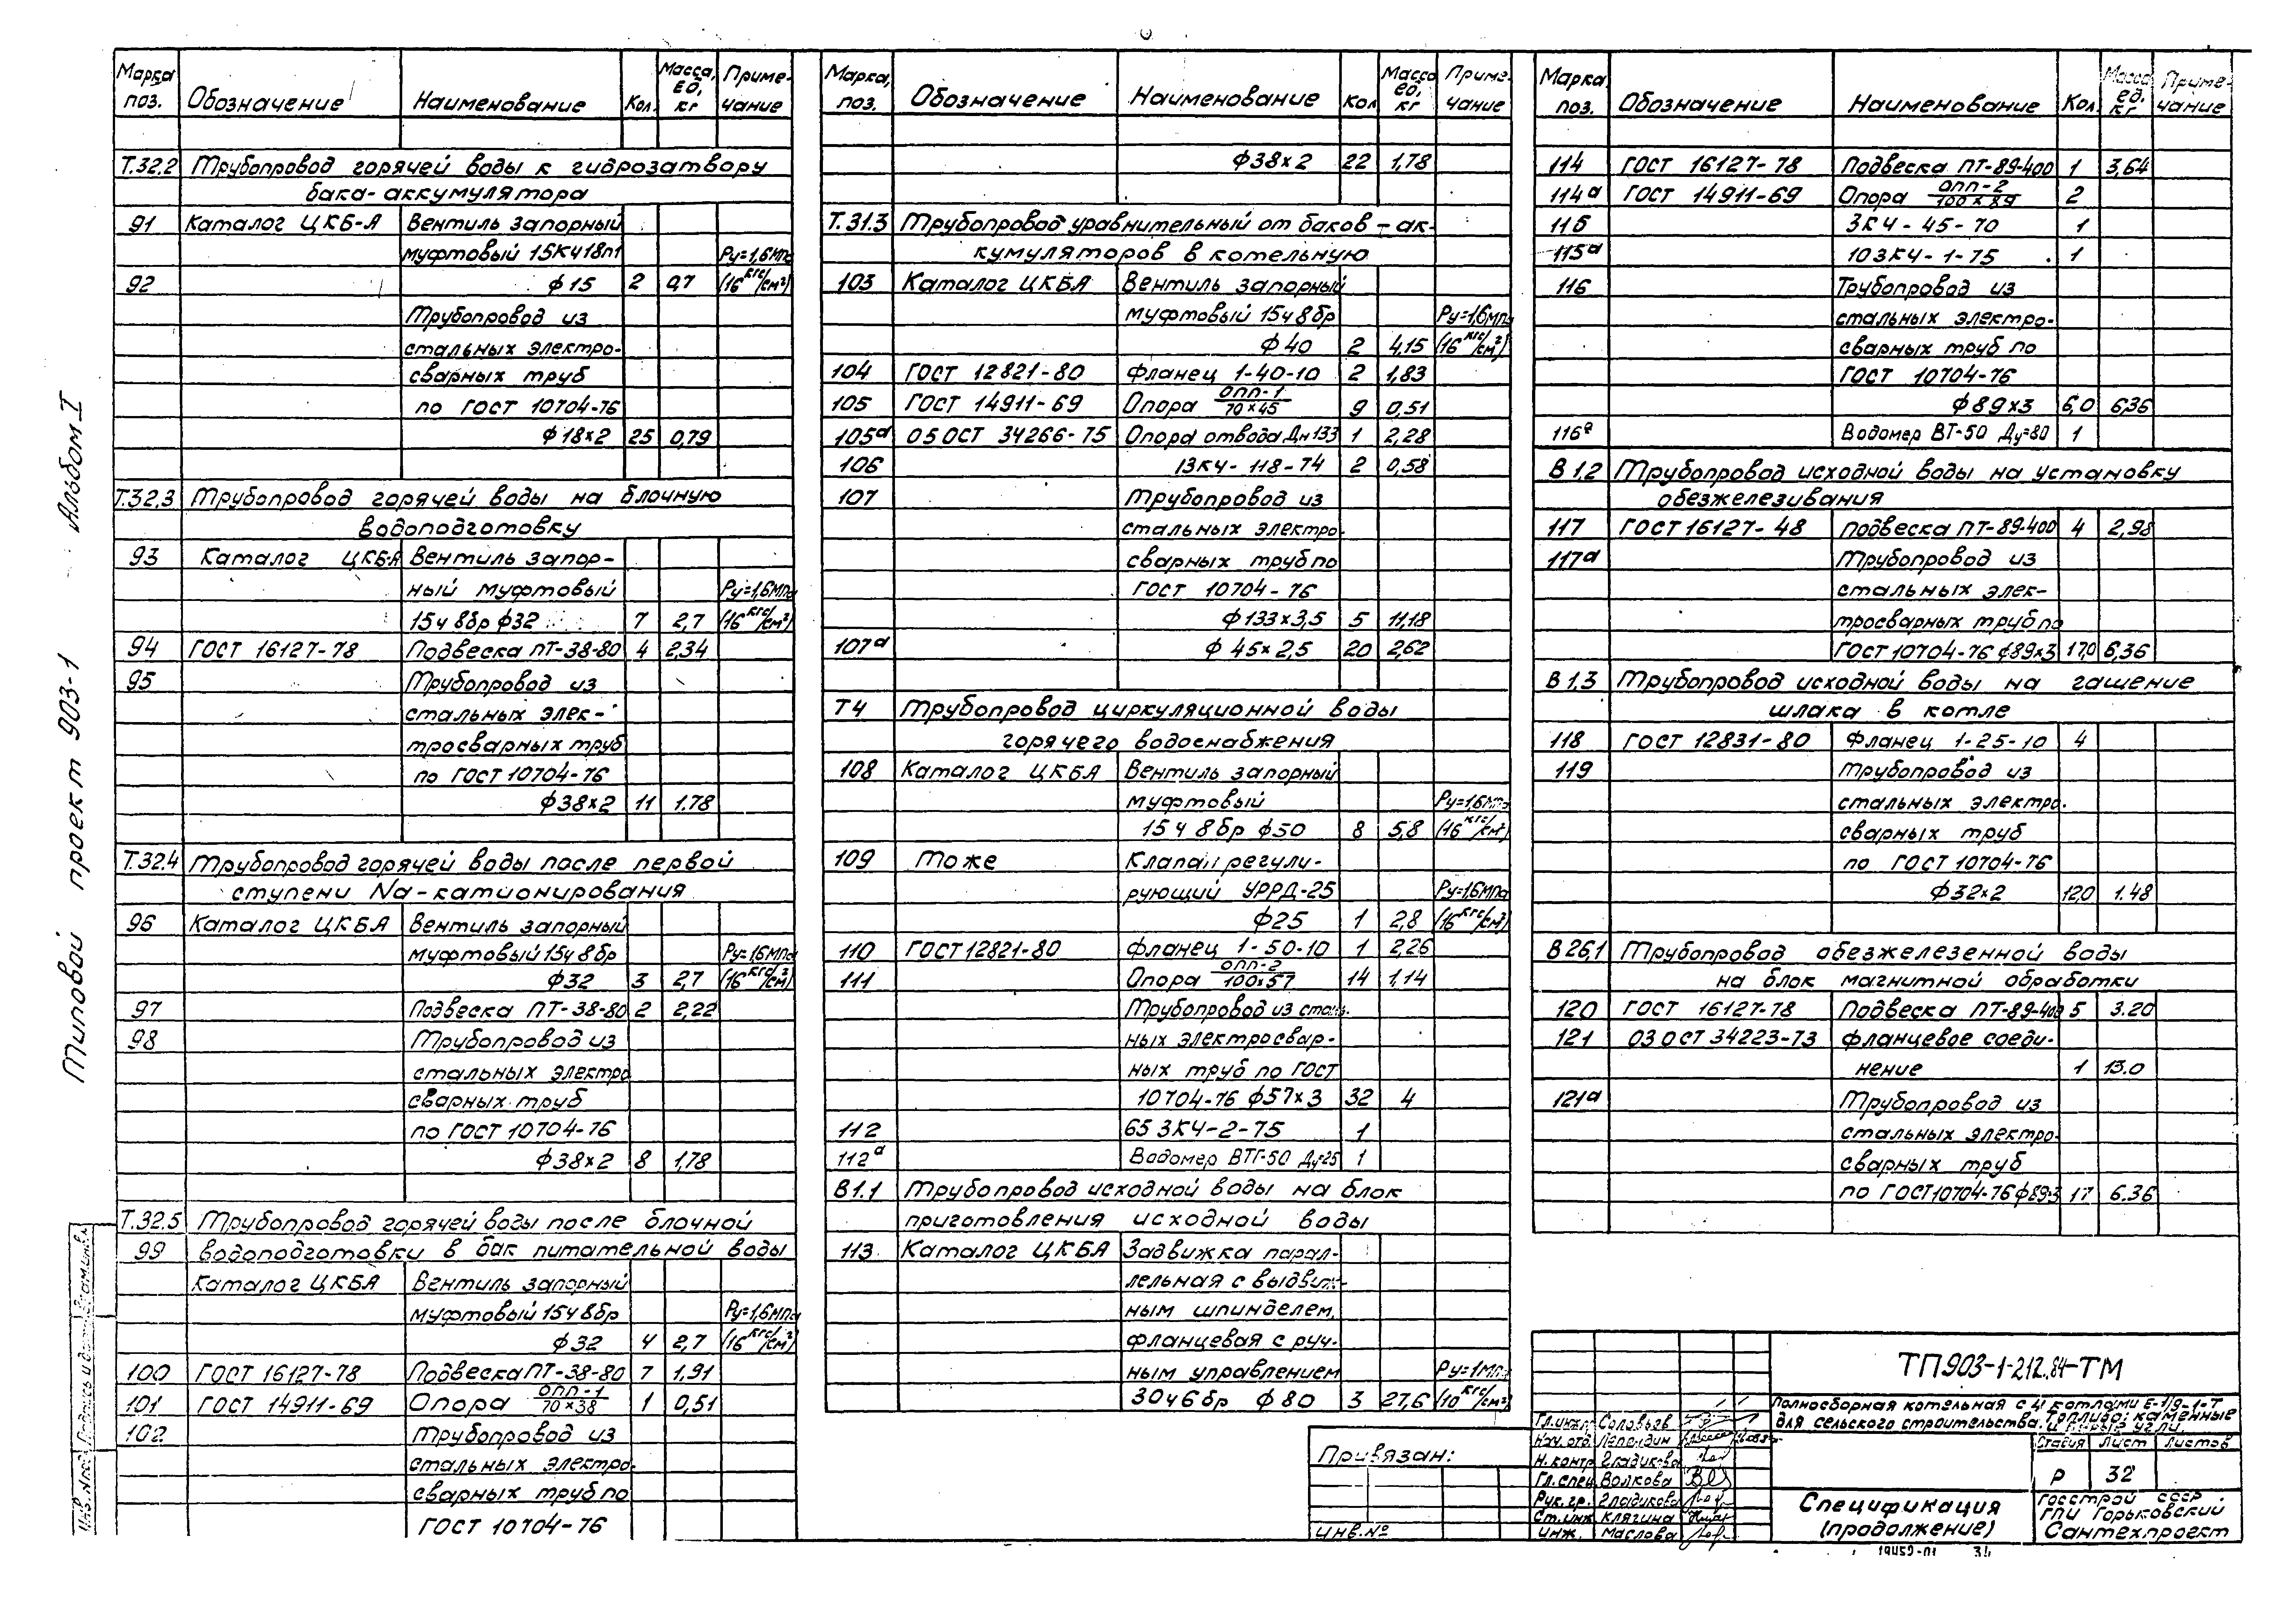 Типовой проект 903-1 Альбом I
Марка поз. Обозначение Наименование Кол. Масса, ед, кг Приме-чание
Т.32.2 Трубопровод горячей воды к гидрозатвору
бака-аккумулятора
91 Каталог ЦКБ-А Вентиль запорный
муфтовый 15кч18п1 Ру=1,6мпа
92 ф15 2 0,7 (16 кгс/см²)
Трубопровод из
стальных электро-
сварных труб
по ГОСТ 10704-76
ф18×2 25 0,79
Т.32.3 Трубопровод горячей воды на блочную
водоподготовку
93 Каталог ЦКБА Вентиль запор-
ный муфтовый Ру=1,6мпа
15ч 8бр ф32 7 2,7 (16 кгс/см²)
94 ГОСТ 16127-78 Подвеска ПТ-38-80 4 2,34
95 Трубопровод из
стальных элек-
тросварных труб
по ГОСТ 10704-76
ф38×2 11 1.78
Т.32.4 Трубопровод горячей воды после первой
ступени Na-катионирования
96 Каталог ЦКБА Вентиль запорный
муфтовый 15ч 8бр Ру=1,6мпа
ф32 3 2,7 (16 кгс/см²)
97 Подвеска ПТ-38-80 2 2,22
98 Трубопровод из
стальных электро
сварных труб
по ГОСТ 10704-76
ф38×2 8 1,78
Т.32.5 Трубопровод горячей воды после блочной
99 водоподготовки в бак питательной воды
Каталог ЦКБА Вентиль запорный
муфтовый 15ч 8бр Ру=1,6мпа
ф32 4 2,7 (16 кгс/см²)
100 ГОСТ 16127-78 Подвеска ПТ-38-80 7 1,91
101 ГОСТ 14911-69 Опора опп-1/70×38 1 0,51
102 Трубопровод из
стальных электро-
сварных труб по
ГОСТ 10704-76
Марка, поз. Обозначение Наименование Кол Масса ед, кг Приме-чание
ф38×2 22 1,78
Т.31.3 Трубопровод уравнительный от баков-ак-
кумуляторов в котельную
103 Каталог ЦКБА Вентиль запорный
муфтовый 15ч 8бр Ру=1,6мпа
ф40 2 4,15 (16 кгс/см²)
104 ГОСТ 12821-80 Фланец 1-40-10 2 1,83
105 ГОСТ 14911-69 Опора опп-1/70×45 9 0,51
105а 05 ОСТ 34266-75 Опора отвода Дн133 1 2,28
106 13КЧ-118-74 2 0,58
107 Трубопровод из
стальных электро-
сварных труб по
ГОСТ 10704-76
ф133×3,5 5 11,18
107а ф45×2,5 20 2,62
Т4 Трубопровод циркуляционной воды
горячего водоснабжения
108 Каталог ЦКБА Вентиль запорный
муфтовый Ру=1,6мпа
15ч 8бр ф50 8 5,8 (16 кгс/см²)
109 То же Клапан регули-
рующий УРРД-25 Ру=1,6мпа
ф25 1 2,8 (16 кгс/см²)
110 ГОСТ 12821-80 Фланец 1-50-10 1 2,26
111 Опора опп-2/100×57 14 1,14
Трубопровод из сталь-
ных электросвар-
ных труб по ГОСТ
10704-76 ф57×3 32 4
112 65 ЗКЧ-2-75 1
112а Водомер ВТГ-50 Ду25 1
В1.1 Трубопровод исходной воды на блок
приготовления исходной воды
113 Каталог ЦКБА Задвижка парал-
лельная с выдвиж-
ным шпинделем,
фланцевая с руч-
ным управлением Ру=1мпа
30ч6бр ф80 3 27,6 (10 кгс/см²)
Марка поз. Обозначение Наименование Кол. Масса ед. кг Приме-чание
114 ГОСТ 16127-78 Подвеска ПТ-89-400 1 3,64
114а ГОСТ 14911-69 Опора опп-2/100×89 2
115 ЗКЧ-45-70 1
115а 10ЗКЧ-1-75 1
116 Трубопровод из
стальных электро-
сварных труб по
ГОСТ 10704-76
ф89×3 6,0 6,36
116а Водомер ВТ-50 Ду=80 1
В1.2 Трубопровод исходной воды на установку
обезжелезивания
117 ГОСТ 16127-48 Подвеска ПТ-89-400 4 2,98
117а Трубопровод из
стальных элек-
тросварных труб по
ГОСТ 10704-76 ф89×3 17,0 6,36
В1.3 Трубопровод исходной воды на гашение
шлака в котле
118 ГОСТ 12831-80 Фланец 1-25-10 4
119 Трубопровод из
стальных электро-
сварных труб
по ГОСТ 10704-76
ф32×2 12,0 1.48
В26.1 Трубопровод обезжелезенной воды
на блок магнитной обработки
120 ГОСТ 16127-78 Подвеска ПТ-89-400 5 3.20
121 03 ОСТ 34223-73 Фланцевое соеди-
нение 1 13.0
121а Трубопровод из
стальных электро-
сварных труб
по ГОСТ 10704-76 ф89×3 17 6.36
Привязан:
Инв.№
Гл.инж. Соловьев
Нач.отд.
Н.контр Гладикова
Гл.спец Волкова
Рук.гр. Гладикова
Ст.инж Клягина
Инж. Маслова
ТП903-1-212.84-ТМ
Полносборная котельная с 4 котлами Е-1/9-1-Т
для сельского строительства. Топливо: каменные
и бурые угли.
Стадия Лист Листов
Р 32
Спецификация
(продолжение)
Госстрой СССР
ГПИ Горьковский
Сантехпроект
Инв.№подл Подпись и дата Взам.инв.№
19459-01 34